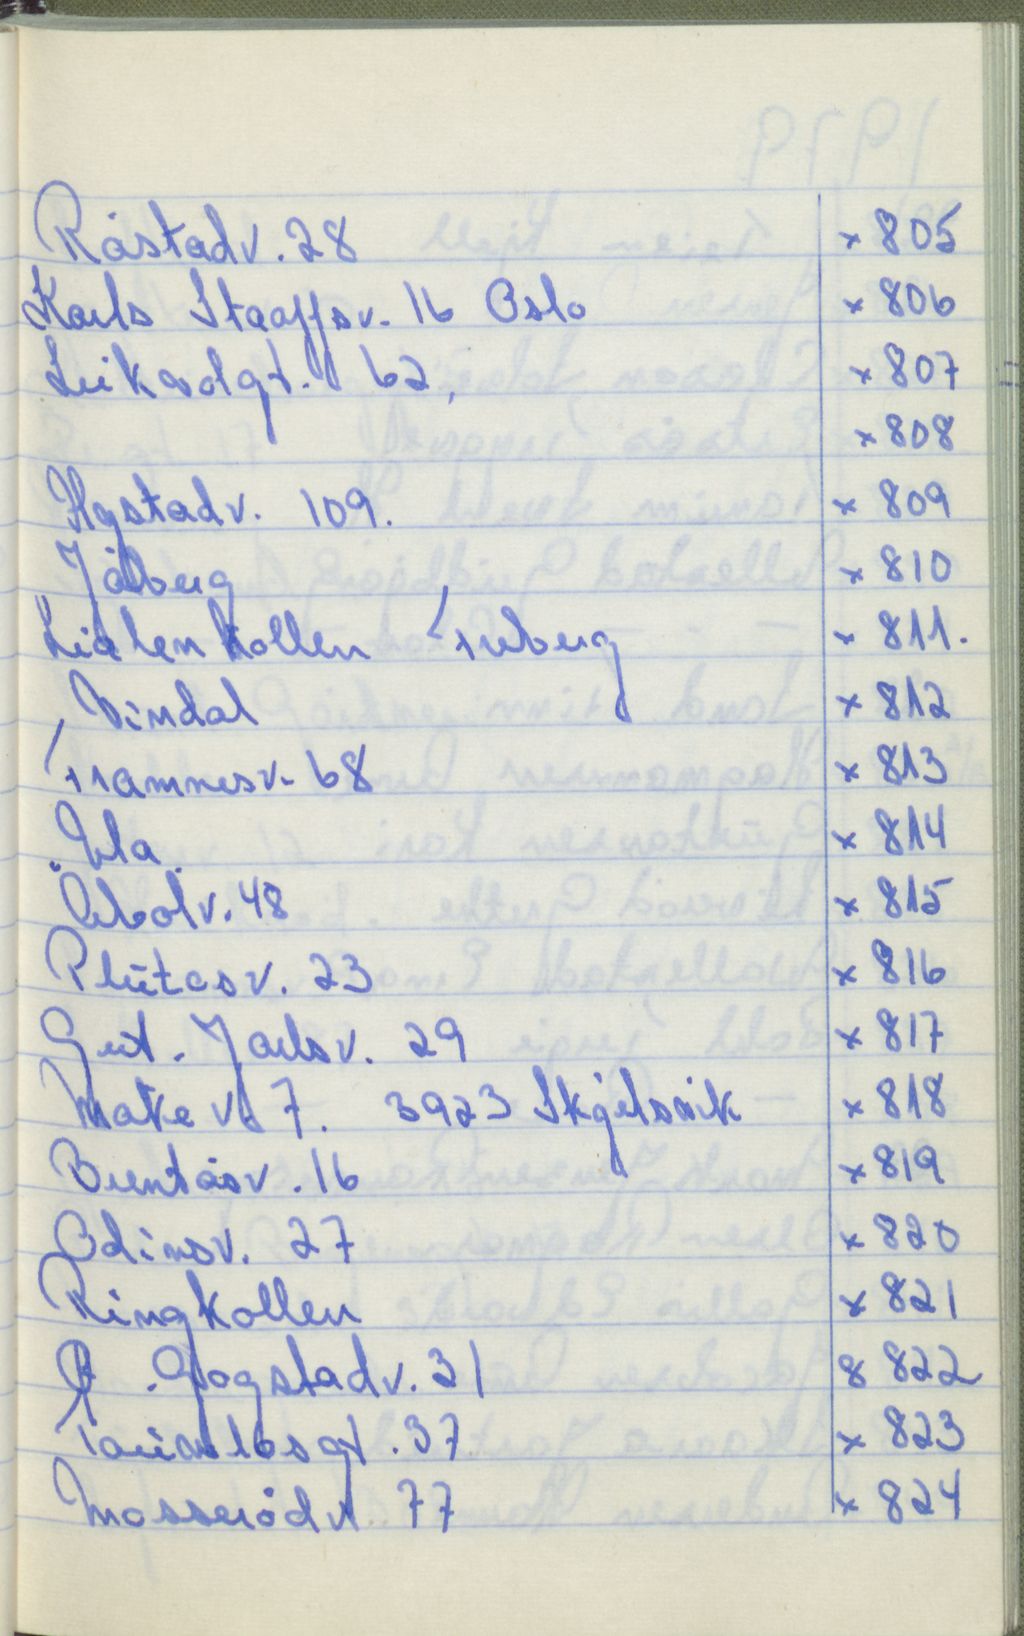 Råstadv. 28 x 805
Karls Staaffsv. 16 Oslo x 806
62, x 807
x 808
Hystadv. 109. x 809
Jåberg x 810
Lialenkollen Freberg x 811.
Vindal x 812
Framnesv. 68 x 813
Ula. x 814
48 x 815
Plutosv. 23 x 816
Gut. Jarlsv. 29 x 817
Makev. 7. 3923 Skjelsvik x 818
Bentåsv. 16 x 819
Odinsv. 27 x 820
Ringkollen x 821
Gogstadv. 31 8 822
37 x 823
Mosserødv. 77 x 824